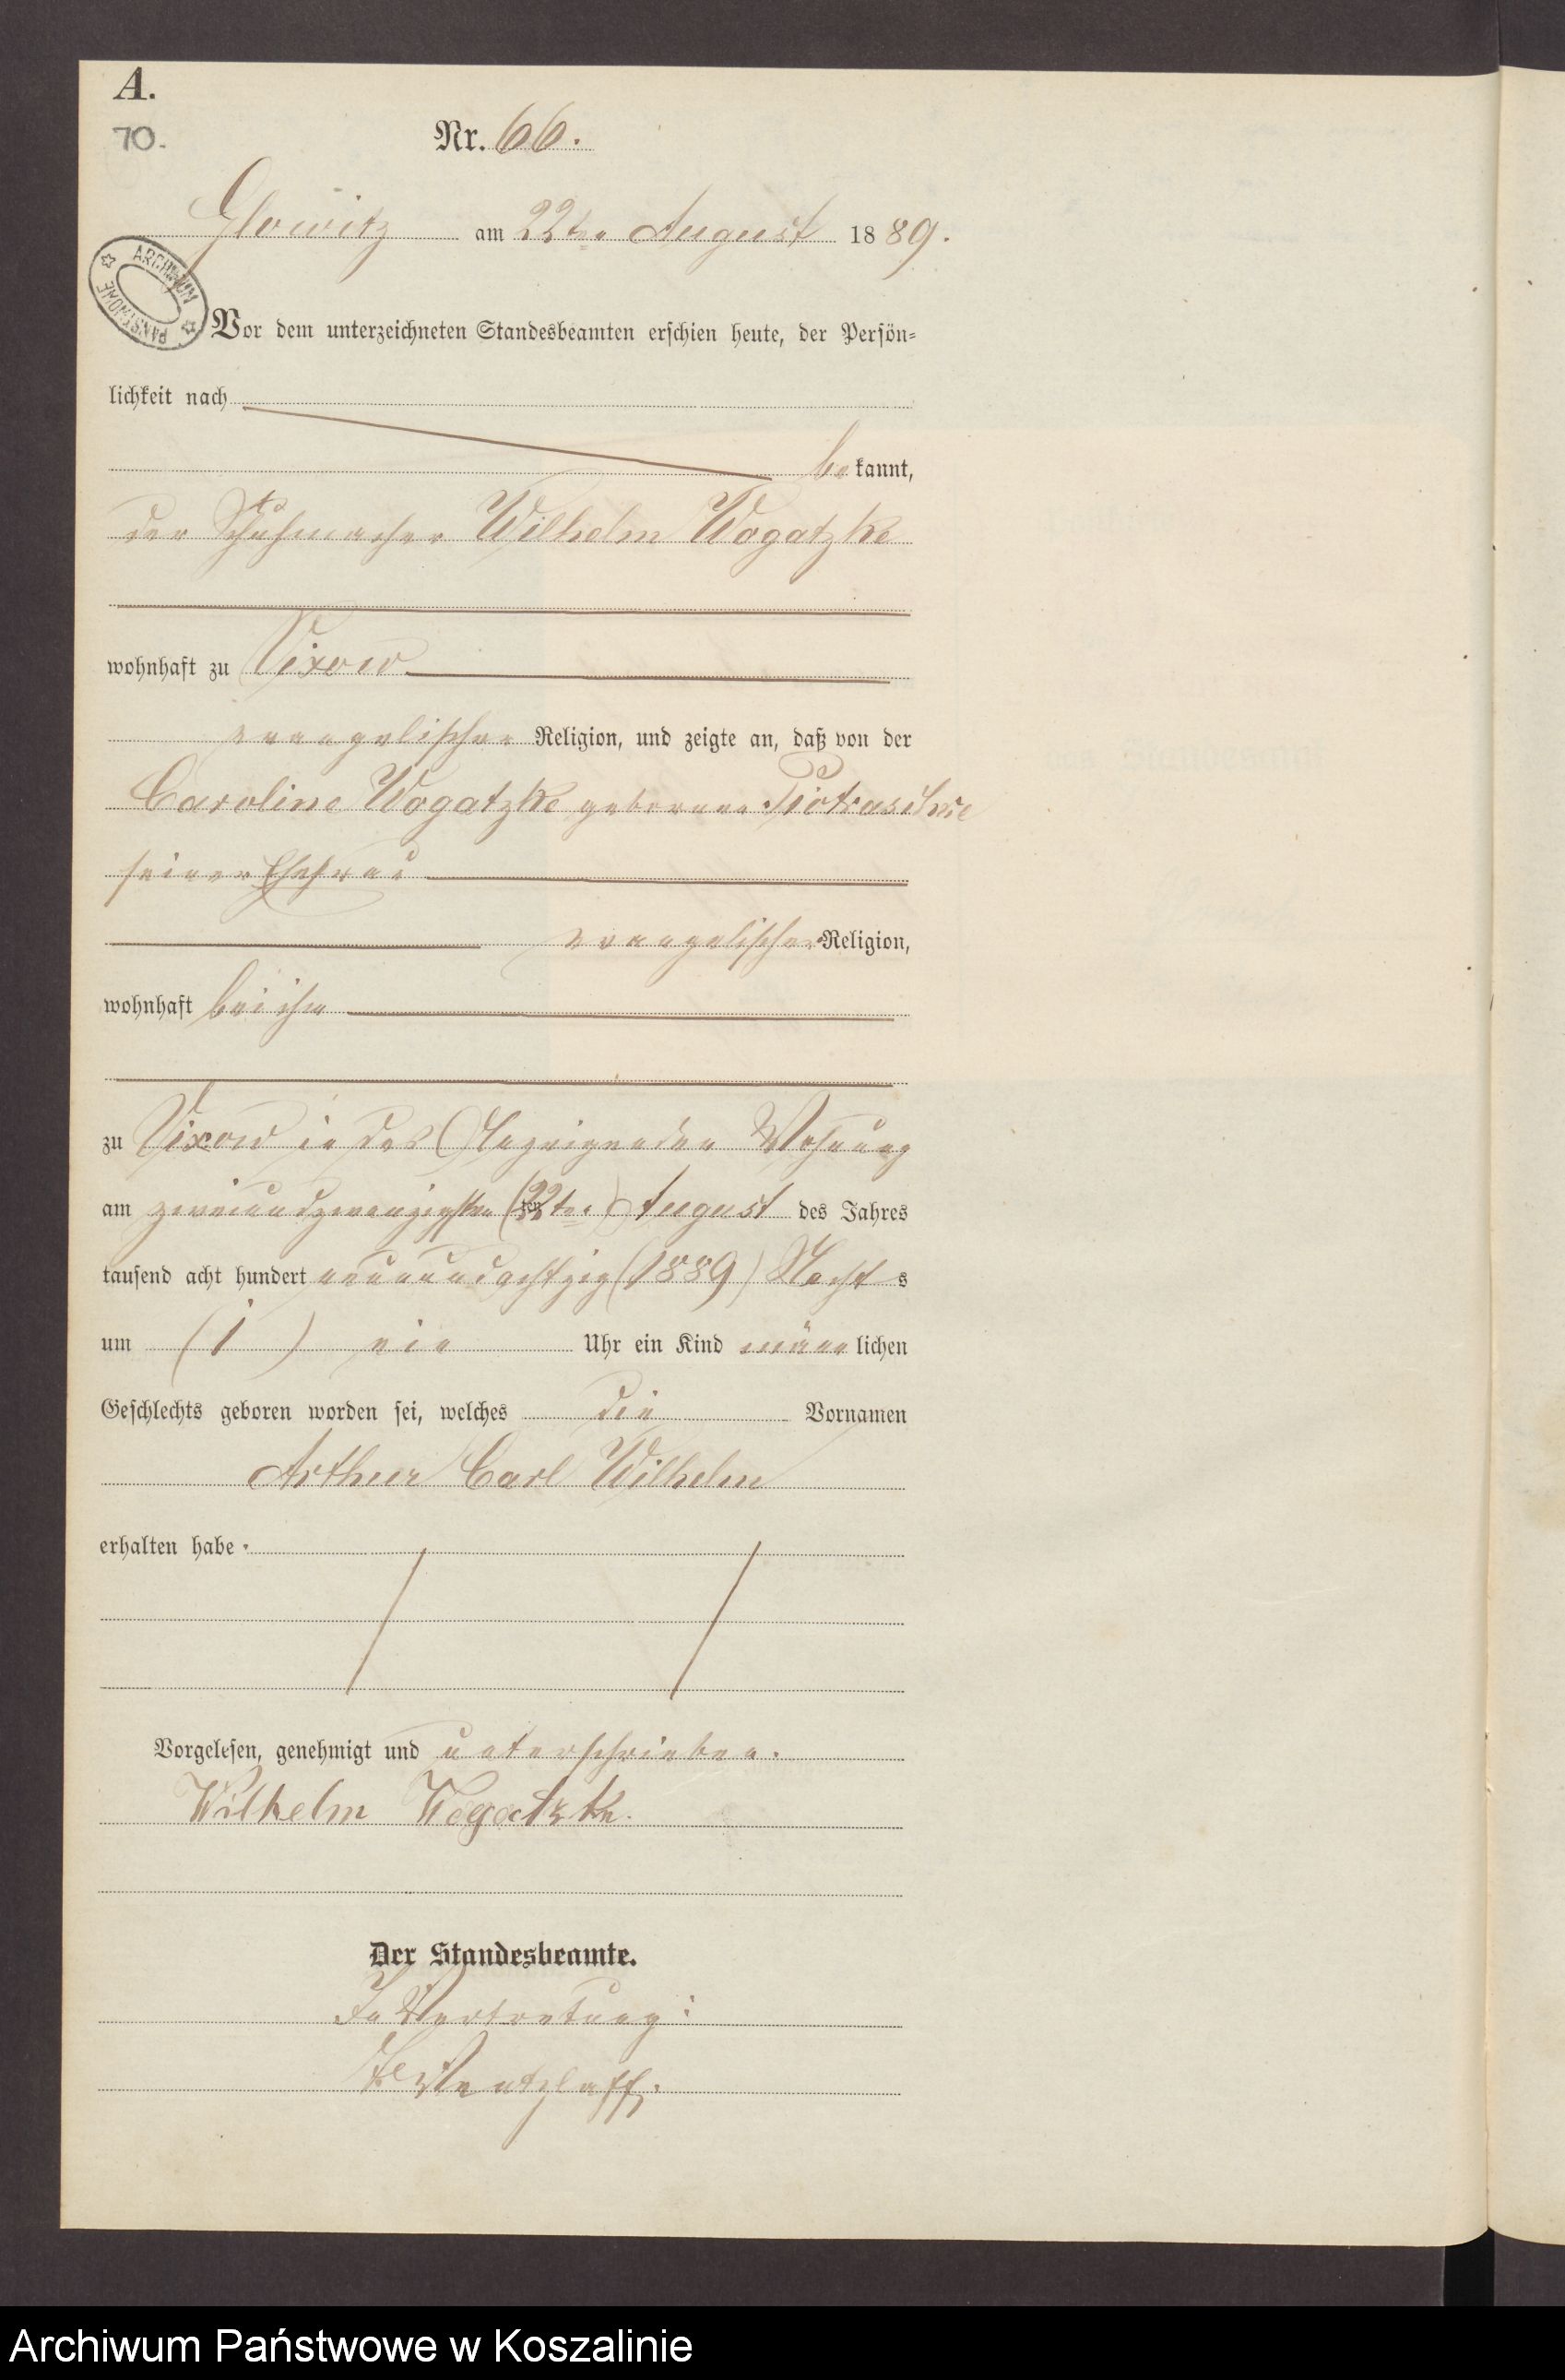 A.
70.
Nr. 66.
Glowitz am 22ten August 1889.
ARCHIWUM PAŃSTWOWE
Vor dem unterzeichneten Standesbeamten erschien heute, der Persön-
lichkeit nach
bekannt,
der Schuhmacher Wilhelm Wogatzke
wohnhaft zu Vixow
evangelischer Religion, und zeigte an, daß von der
Caroline Wogatzke geborene
seiner Ehefrau
evangelischer Religion,
wohnhaft bei ihm
zu Vixow in des Anzeigenden Wohnung
am zweiundzwanzigsten (22ten) August des Jahres
tausend acht hundert neunundachtzig (1889) Nachts
um (1) ein Uhr ein Kind männlichen
Geschlechts geboren worden sei, welches die Vornamen
Arthur Carl Wilhelm
erhalten habe.
Vorgelesen, genehmigt und unterschrieben.
Wilhelm Wogatzke.
Der Standesbeamte.
In Vertretung:
Archiwum Państwowe w Koszalinie